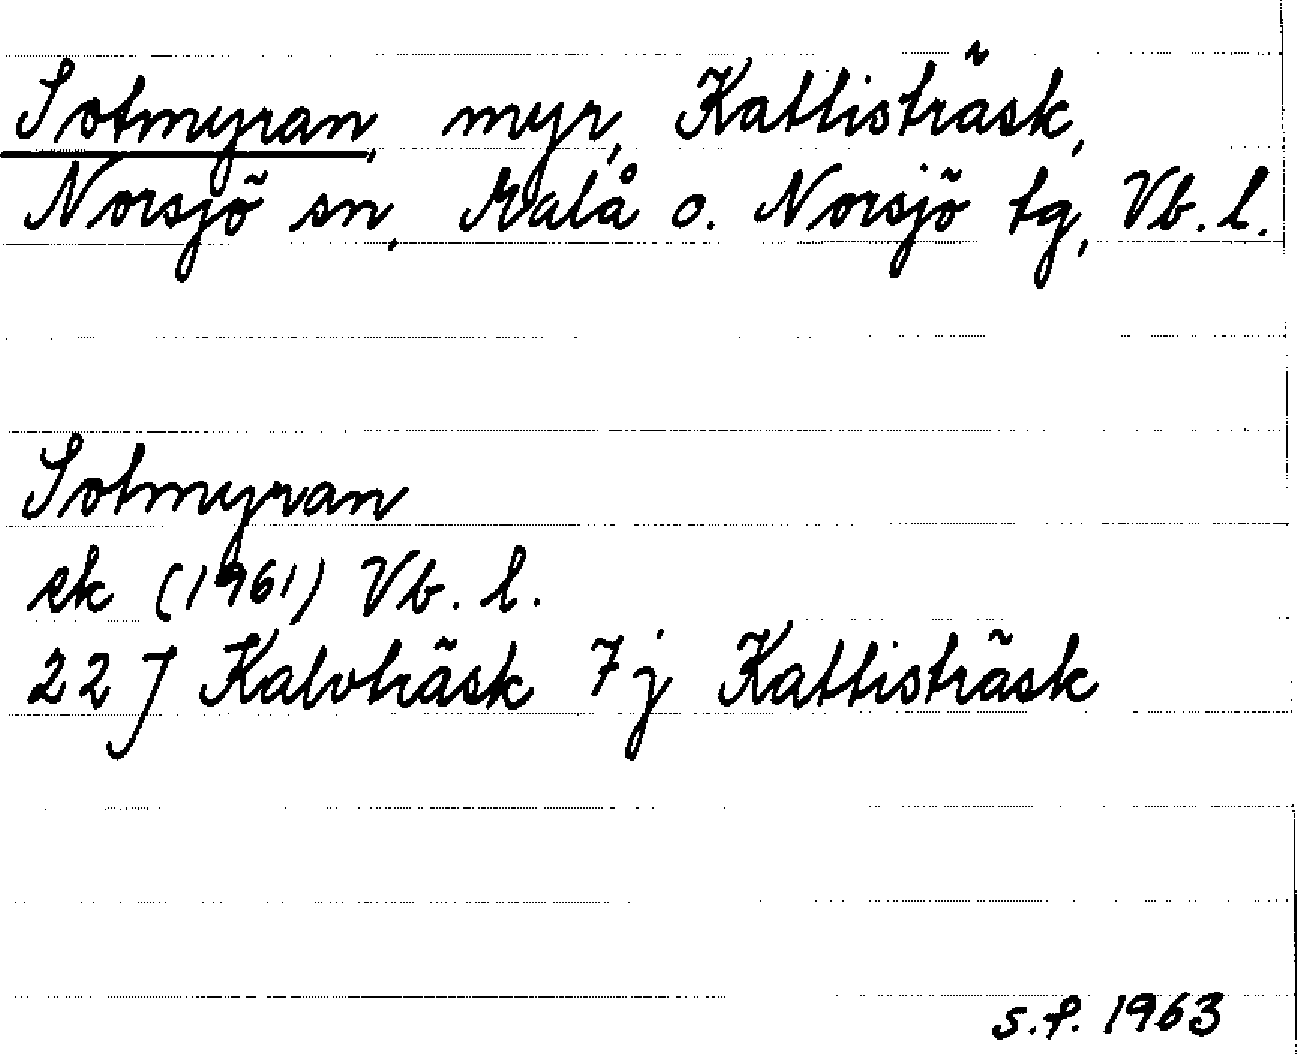 Sotmyran, myr, Kattisträsk,
Norsjö sn, Malå o. Norsjö tg, Vb. l.
Sotmyran
ek (1961) Vb. l.
22 J Kalvträsk 7 j Kattisträsk
S.F. 1963